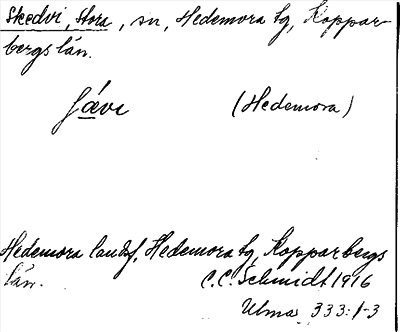 Skedvi, Stora, sn, Hedemora tg, Koppar-
bergs län.
Jävi (Hedemora)
Hedemora landsf, Hedemora tg, Kopparbergs
län. C.C. Schmidt 1916
Ulma 333:1-3